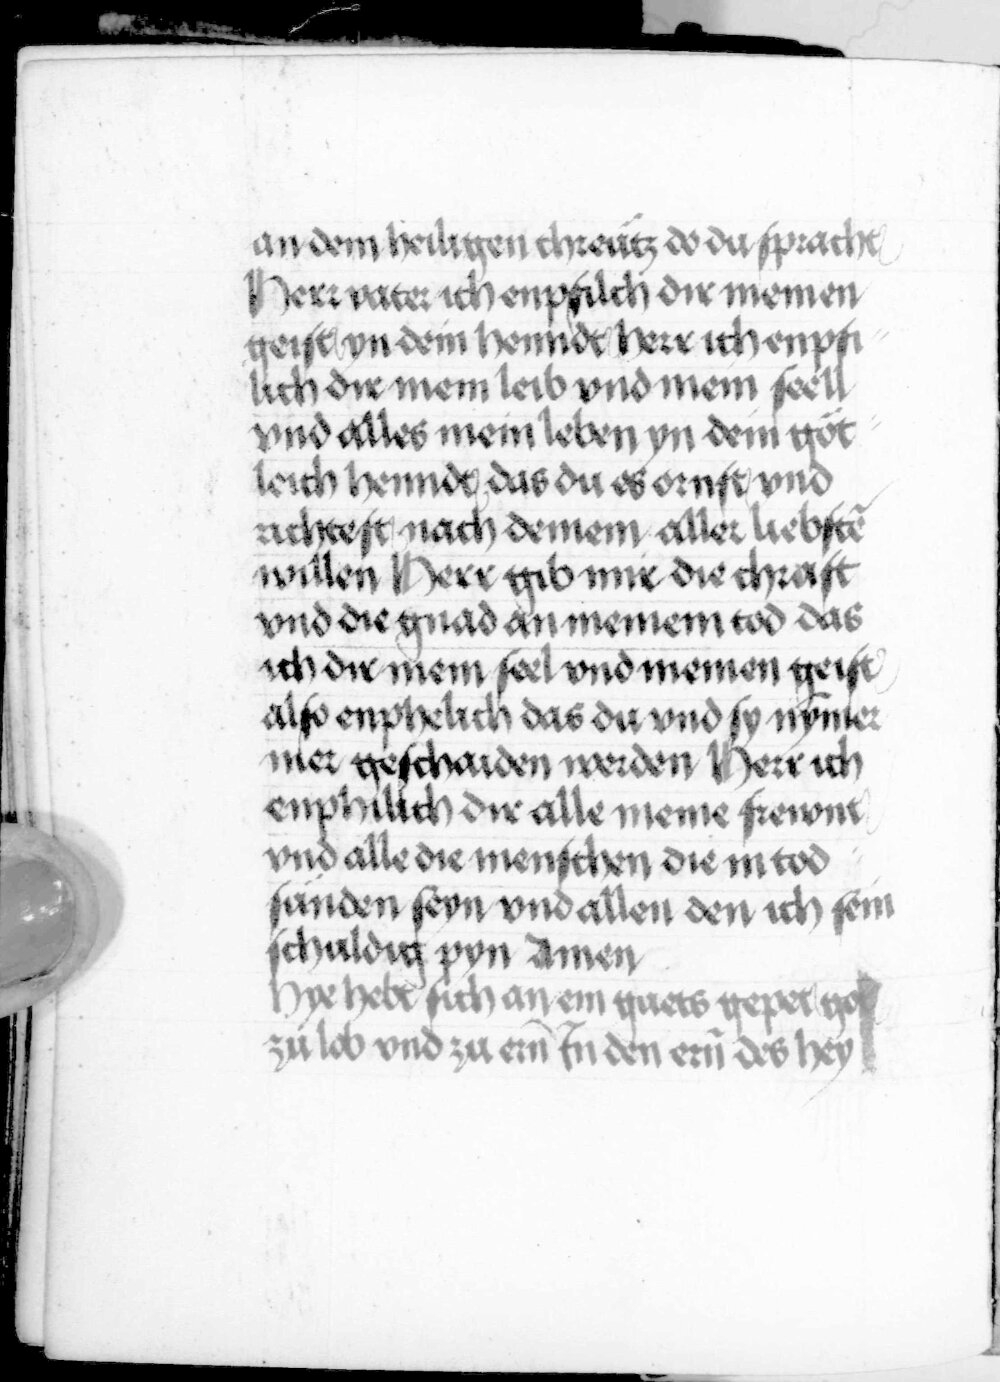 an dem heiligen chreütz do du spracht
Herr vater ich enpfilch dir meinen
geist yn dein henndt herr ich enpfi-
lich dir mein leib vnd mein seell
vnd alles mein leben yn dein göt-
leich henndt das du es ornst vnd
richtest nach deinem aller liebstē
willen Herr gib mir die chraft
vnd die gnad an meinem tod das
ich dir mein seel vnd meinen geist
also enphelich das du vnd sy nȳmer
mer geschaiden werden Herr ich
enphilich dir alle meine frewnt
vnd alle die menschen die in tod
sünden seyn vnd allen den ich sein
schuldig pyn Amen
Hye hebt sich an ein guets gepet got
zu lob vnd zu ern̄ In den ern̄ des hey